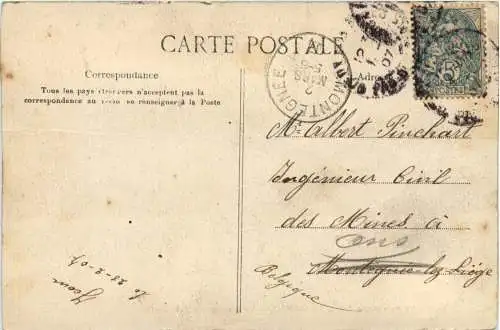 CARTE POSTALE
Correspondance
Tous les pays étrangers n'acceptent pas la
correspondance au recto se renseigner à la Poste
MONTEGNÉE
2
MARS
07
5c
Mr Albert Pinchart
Ingénieur Civil
des Mines à
Ans
Montegnée lez Liége
Belgique
le 28-2-07